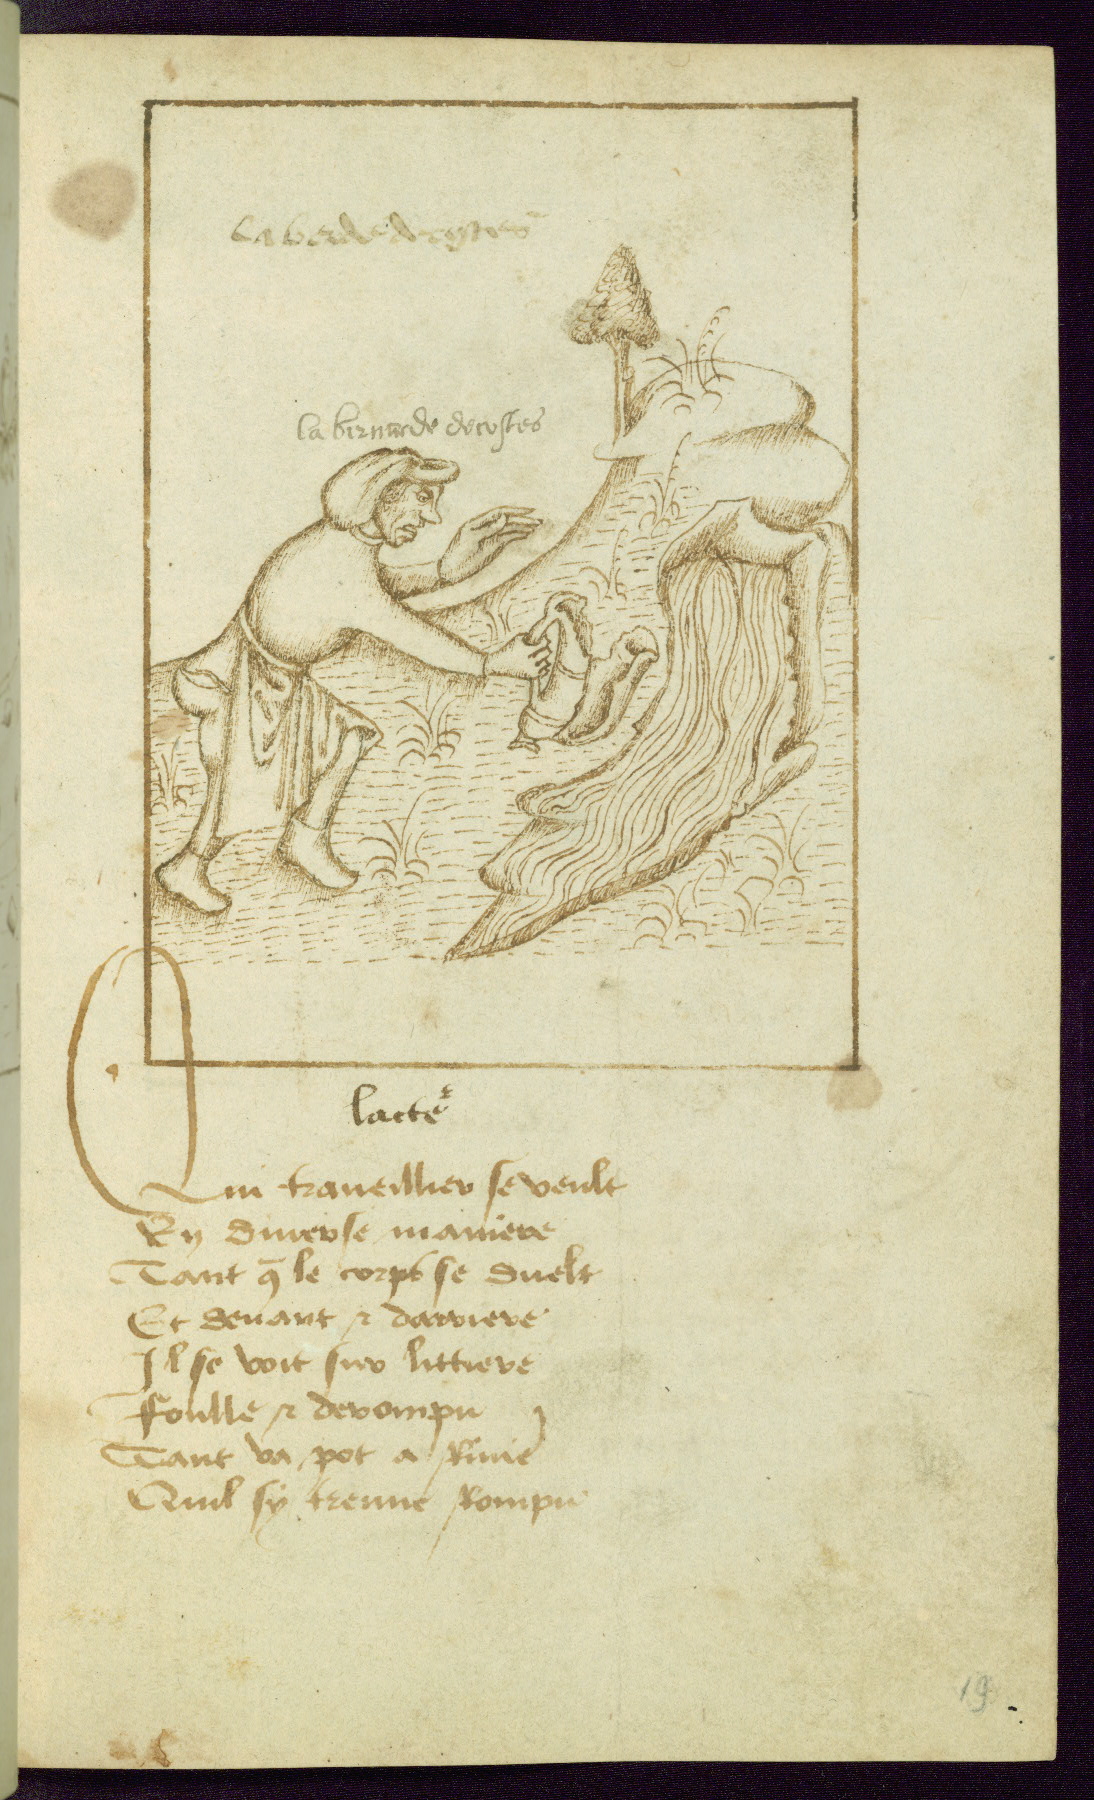 la bernarde decostes
lacte
Qui traveillier se veult
En diverse maniere
Tant q̄ le corps se duelt
Et devant et darriere
Il se voit sur littiere
Foulle et derompu
Tant va pot a Rivie
Quil sy treuve Rompu
19